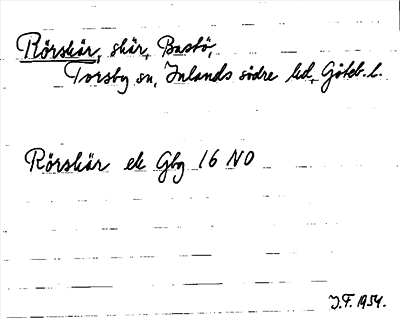 Rörskär, skär, Bastö,
Torsby sn, Inlands södre hd, Göteb. l.
Rörskär ek Gbg 16 NO
J.F. 1954.